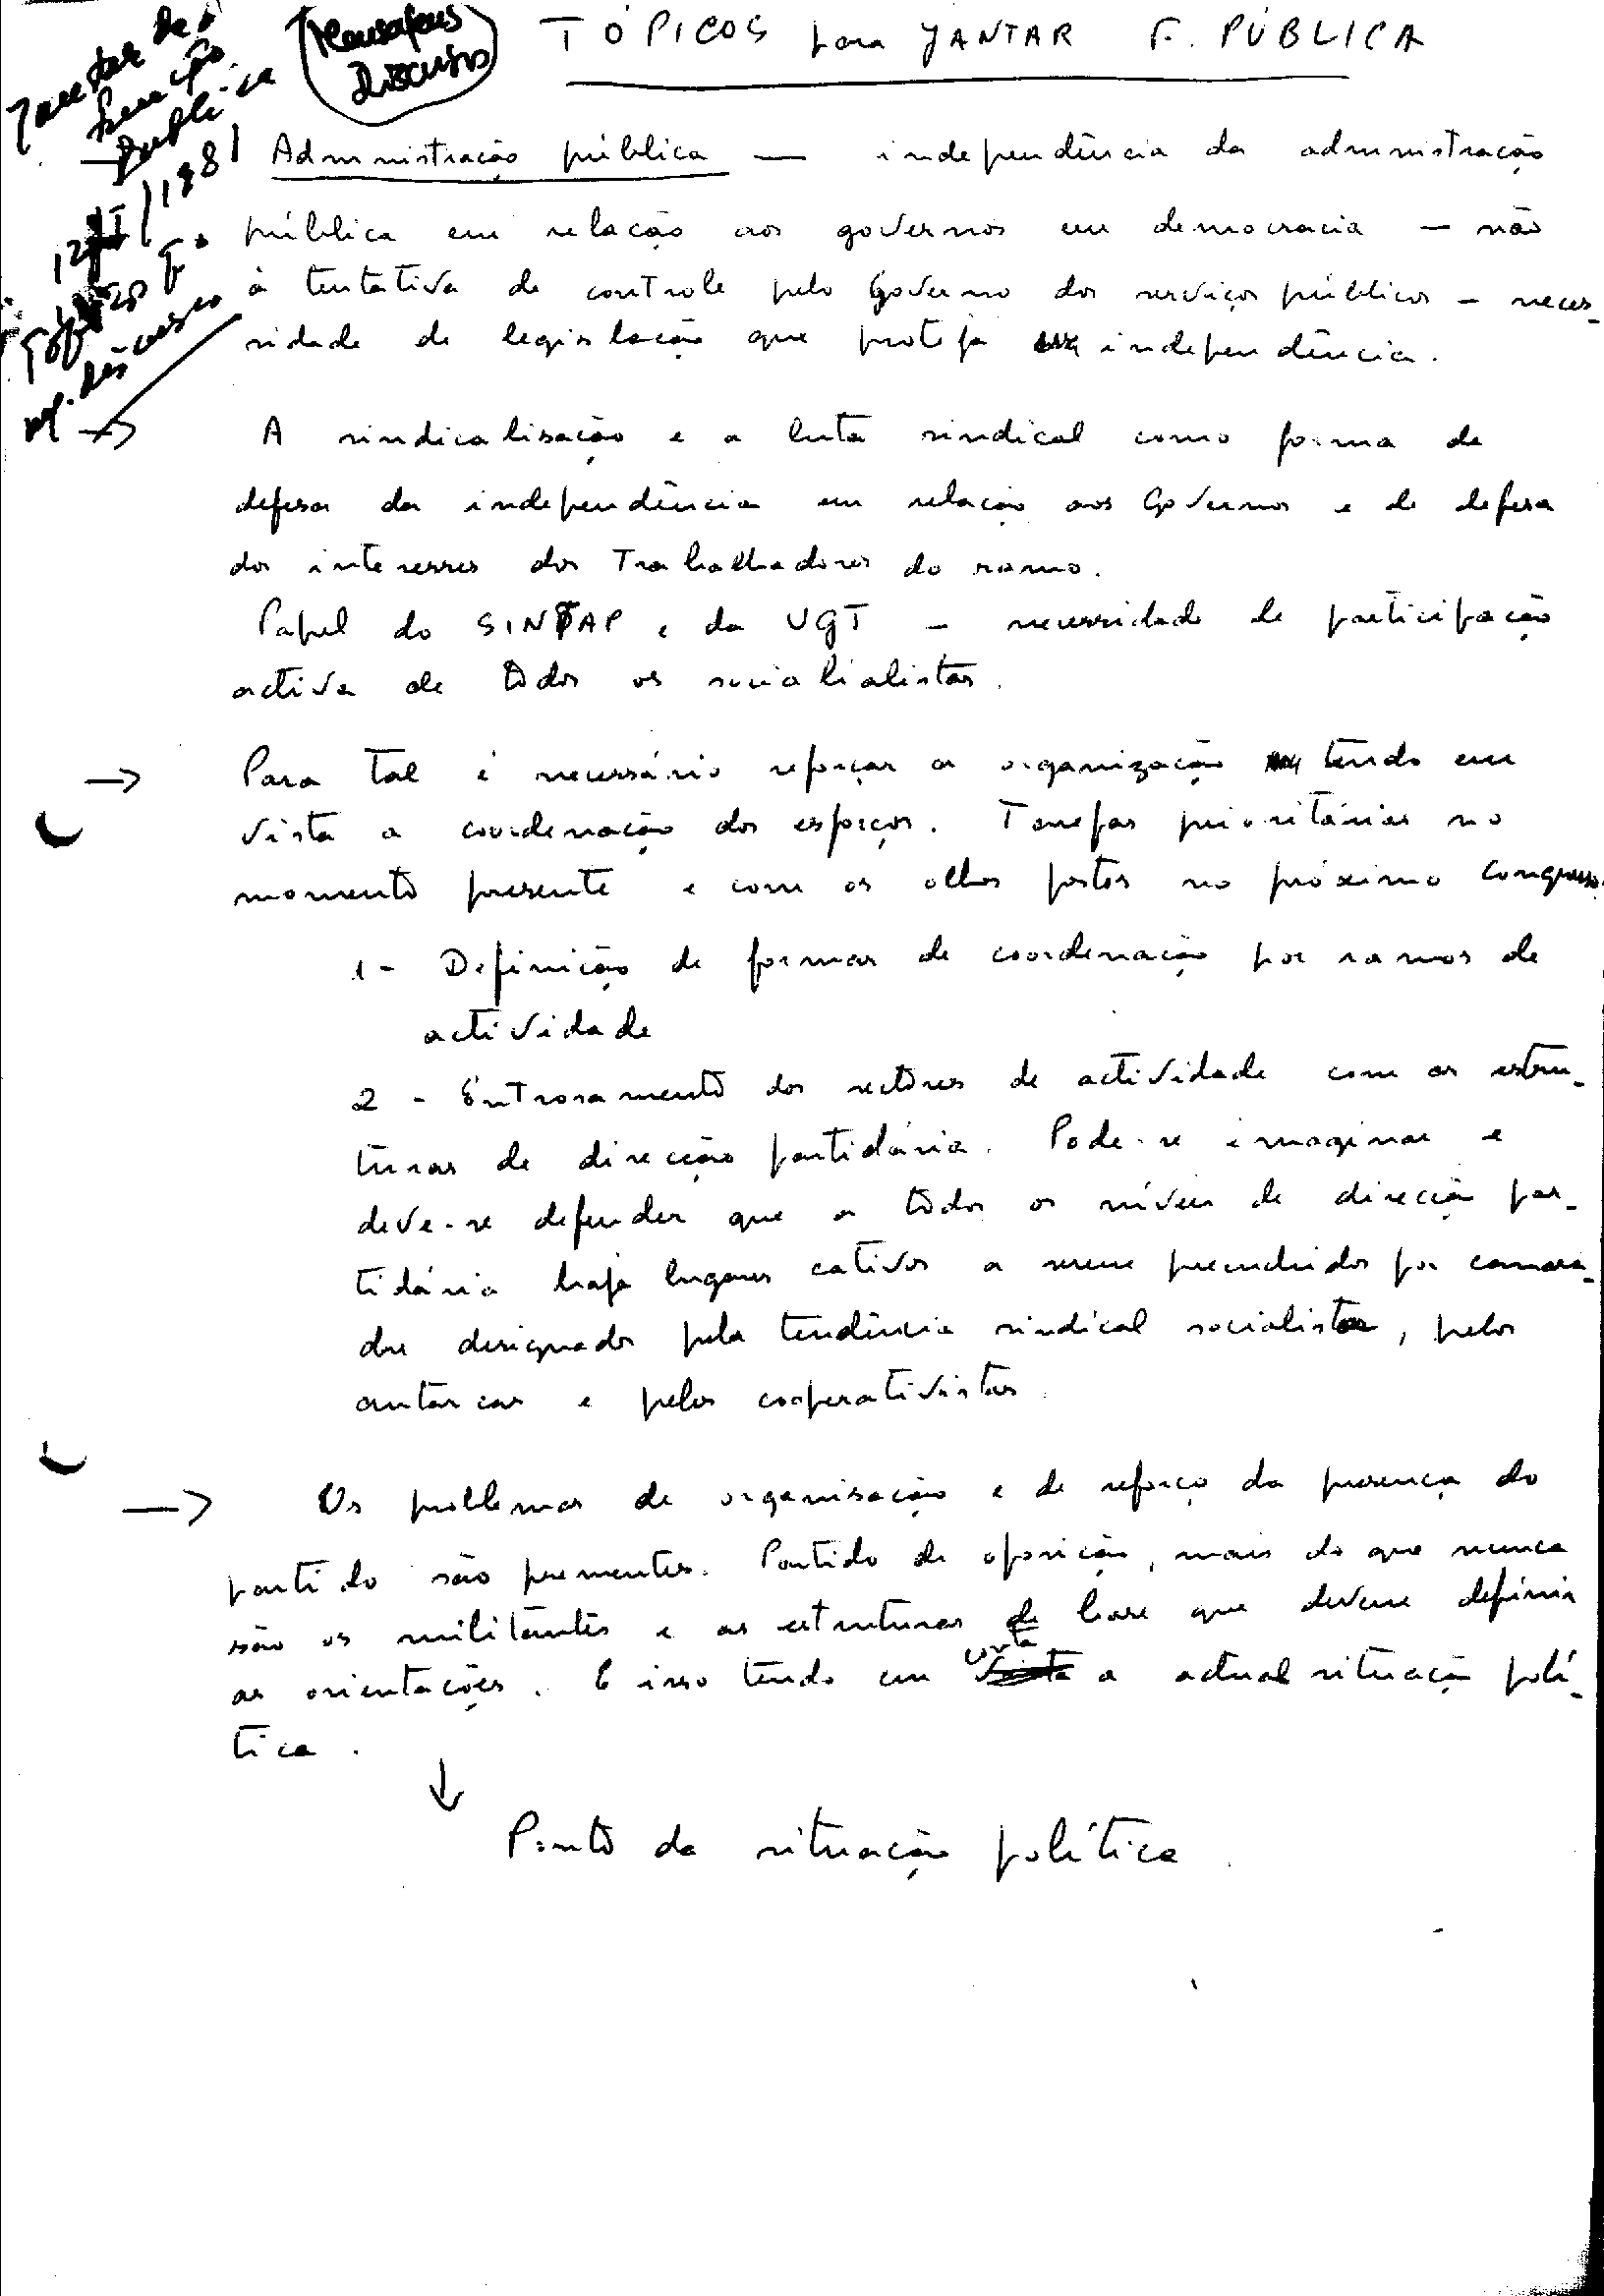 Jantar da
função
pública
1981
Mensagens
Discursos
TÓPICOS para JANTAR F. PÚBLICA
Administração pública — independência da administração
pública em relação aos governos em democracia — não
à tentativa de controle pelo Governo dos serviços públicos — neces-
sidade de legislação que proteja independência.
→ A sindicalisação e a luta sindical como forma de
defesa da independência em relação aos Governos e de defesa
dos interesses dos Trabalhadores do ramo.
Papel do SINTAP e da UGT — necessidade de participação
activa de todos os socialialistas.
→ Para tal é necessário reforçar a organização tendo em
vista a coordenação dos esforços. Tarefas prioritárias no
momento presente e com os olhos postos no próximo congresso.
1 - Definição de formas de coordenação por ramos de
actividade
2 - Entrosamento dos sectores de actividade com as estru-
turas de direcção partidária. Pode-se imaginar e
deve-se defender que a todos os níveis de direcção par-
tidária haja lugares cativos a serem preenchidos por camara-
das designados pela tendência sindical socialista, pelos
autarcas e pelos cooperativistas.
→ Os problemas de organisação e de reforço da presença do
partido são prementes. Partido de oposição, mais do que nunca
são os militantes e as estruturas de base que devem definir
as orientações. E isso tendo em conta a actual situação polí-
tica.
↓
Ponto da situação política.